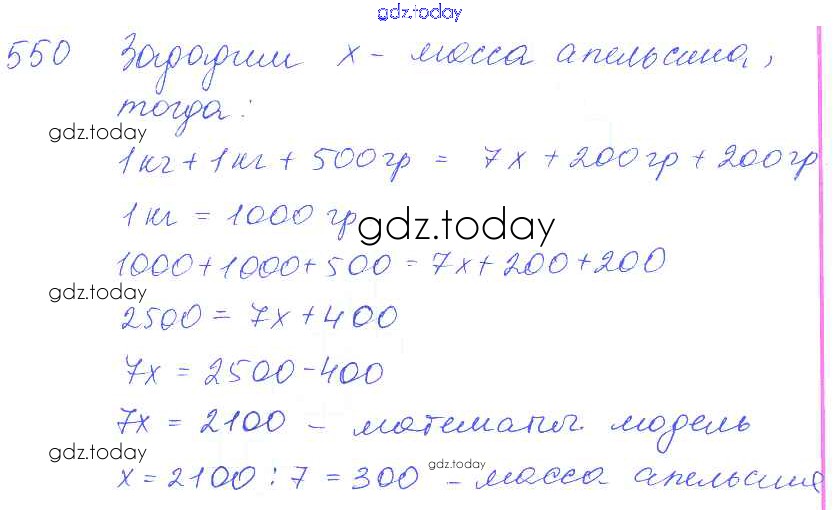 gdz.today
550 Зададим x - масса апельсина,
тогда:
gdz.today
1кг + 1кг + 500гр = 7x + 200гр + 200гр
1кг = 1000 гр
gdz.today
1000 + 1000 + 500 = 7x + 200 + 200
gdz.today
2500 = 7x + 400
7x = 2500 - 400
7x = 2100 - математич. модель
gdz.today
gdz.today
x = 2100 : 7 = 300 - масса апельсина